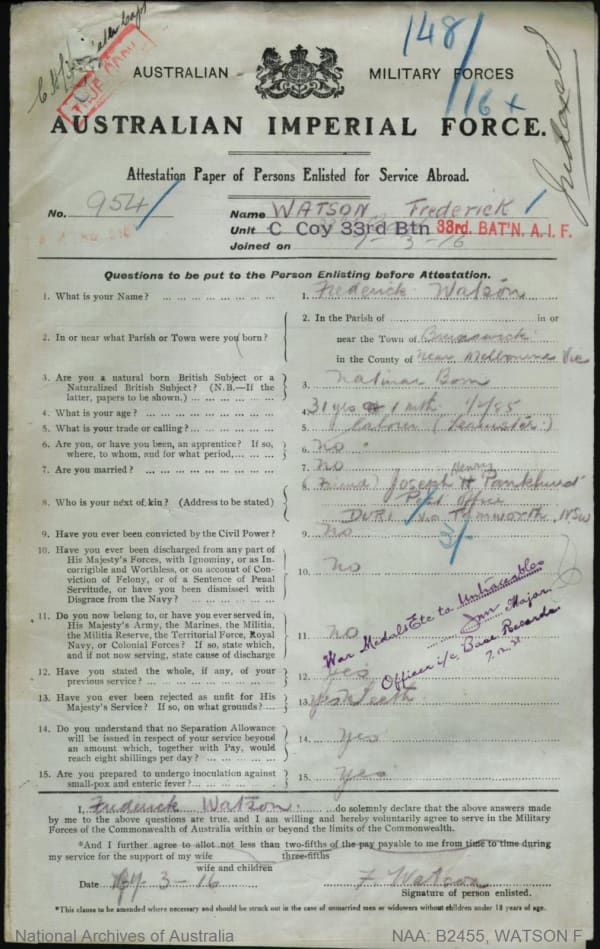 148/
16 +
Indexed
TRUE COPY
AUSTRALIAN MILITARY FORCES
AUSTRALIAN IMPERIAL FORCE.
Attestation Paper of Persons Enlisted for Service Abroad.
No. 954
Name WATSON Frederick
Unit C Coy 33rd Btn 33rd. BAT'N. A. I. F.
Joined on 7-3-16
Questions to be put to the Person Enlisting before Attestation.
1. What is your Name? ... 1. Frederick Watson
2. In or near what Parish or Town were you born? 2. In the Parish of ... in or
near the Town of Brunswick
in the County of Near Melbourne Vic
3. Are you a natural born British Subject or a
Naturalized British Subject? (N.B.—If the
latter, papers to be shown.) ... 3. Natural Born
4. What is your age? ... 4. 31 yrs 1 mth 1/2/85
5. What is your trade or calling? ... 5. Labourer (Teamster)
6. Are you, or have you been, an apprentice? If so,
where, to whom, and for what period, ... 6. No
7. Are you married? ... 7. No
8. Who is your next of kin? (Address to be stated) 8. Friend Joseph Henry Pankhurst
Post Office
DURI via Tamworth NSW
9. Have you ever been convicted by the Civil Power? 9. No
3/-
10. Have you ever been discharged from any part of
His Majesty's Forces, with Ignominy, or as In-
corrigible and Worthless, or on account of Con-
viction of Felony, or of a Sentence of Penal
Servitude, or have you been Dismissed with
Disgrace from the Navy? ... 10. No
11. Do you now belong to, or have you ever served in,
His Majesty's Army, the Marines, the Militia,
the Militia Reserve, the Territorial Force, Royal
Navy, or Colonial Forces? If so, state which,
and if not now serving, state cause of discharge 11. No
War Medals Etc to Untraceable
Major
Officer i/c Base Records
12. Have you stated the whole, if any, of your
previous service? ... 12. yes
13. Have you ever been rejected as unfit for His
Majesty's Service? If so, on what grounds? ... 13. yes Teeth
14. Do you understand that no Separation Allowance
will be issued in respect of your service beyond
an amount which, together with Pay, would
reach eight shillings per day? ... 14. Yes
15. Are you prepared to undergo inoculation against
small-pox and enteric fever? ... 15. Yes
I, Frederick Watson ... do solemnly declare that the above answers made
by me to the above questions are true, and I am willing and hereby voluntarily agree to serve in the Military
Forces of the Commonwealth of Australia within or beyond the limits of the Commonwealth.
*And I further agree to allot not less than two-fifths of the pay payable to me from time to time during
my service for the support of my wife three-fifths
wife and children
Date 7-3-16 F. Watson
Signature of person enlisted.
*This clause to be amended where necessary and should be struck out in the case of unmarried men or widowers without children under 18 years of age.
National Archives of Australia NAA: B2455, WATSON F